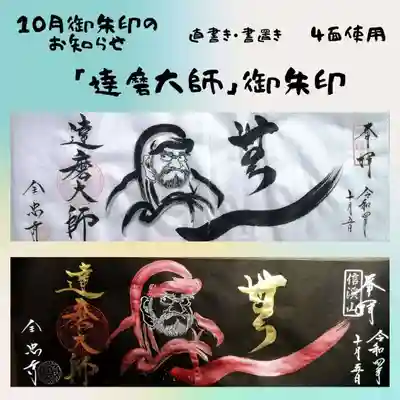 10月御朱印の
お知らせ
直書き・書置き
4面使用
「達磨大師」御朱印
奉拝
令和四年
十月五日
達磨大師
全忠寺
奉拝
信渓山
令和四年
十月五日
達磨大師
全忠寺